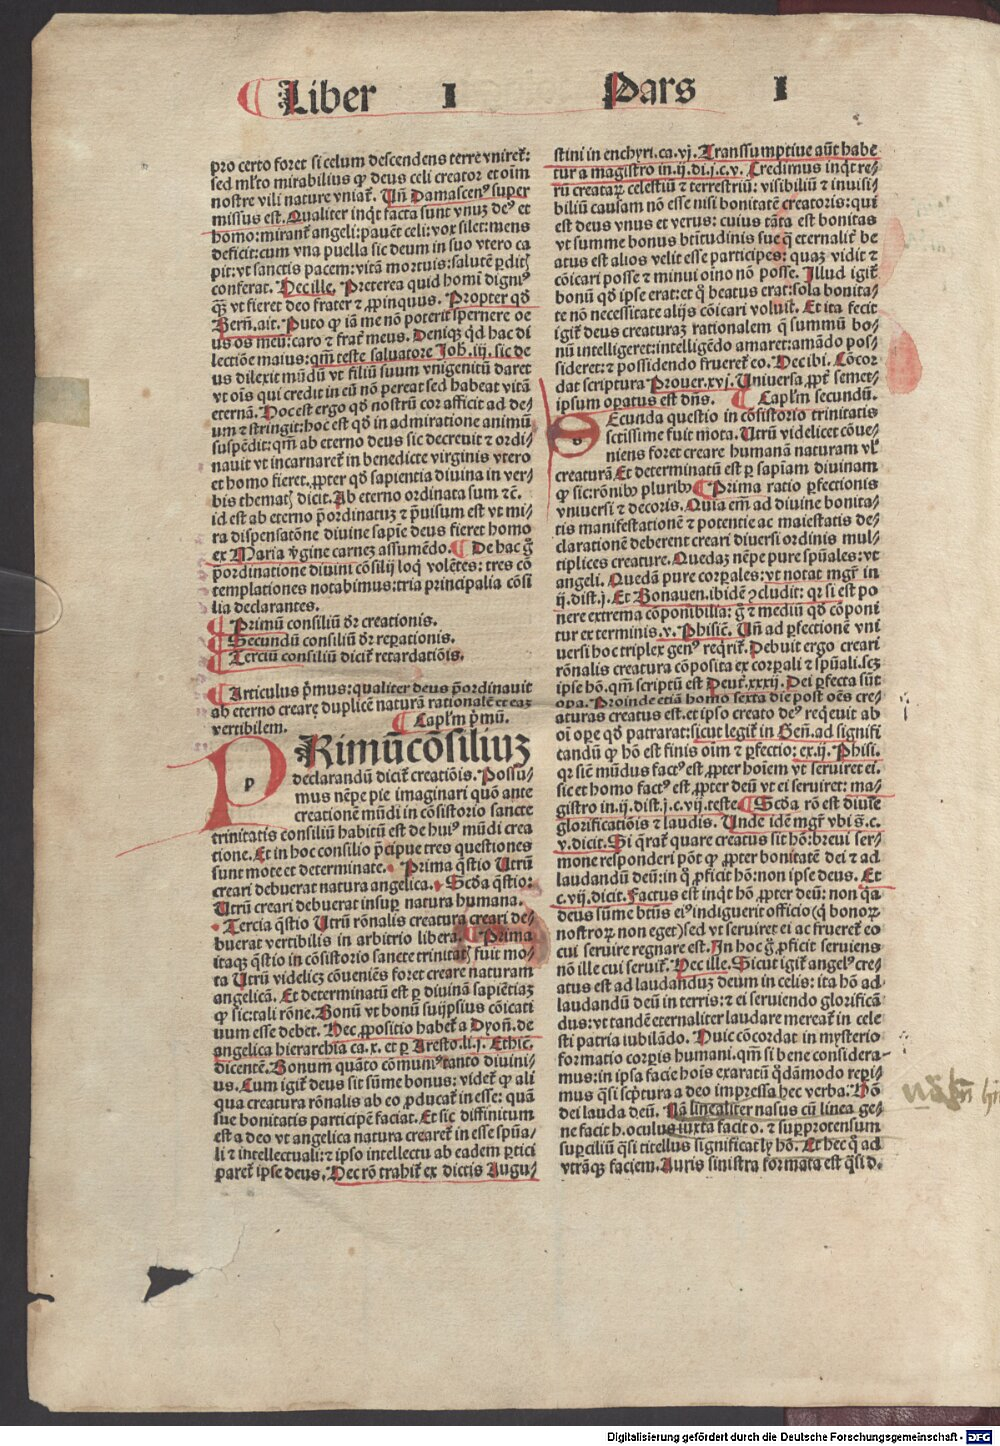 Liber I Pars I
pro certo foret si celum descendens terre vniret᷑:
sed ml̕to mirabilius ꝙ deus celi creator et oīm
nostre vili nature vniat᷑. Un̄ Damascenꝰ super
missus est. Qualiter inqͥt facta sunt vnuꝫ deꝰ et
homo: mirant᷑ angeli: pauēt celi: vox silet: mens
deficit: cum vna puella sic deum in suo vtero ca
pit: vt sanctis pacem: vitā mortuis: salutē ꝑditꝭ
conferat. Hec ille. Preterea quid homī digniꝰ
qͣꝫ vt fieret deo frater ⁊ ꝓpinquus. Propter qd̄
Bern̄. ait. Puto ꝙ iā me nō poterit spernere de
us os meū: caro ⁊ frat᷑ meus. Deniqꝫ qd̓ hac di
lectiōe maius: qm̄ teste saluatore Joh. iij. sic de
us dilexit mūdū vt filiū suum vnigenitū daret
vt oīs qui credit in eū nō pereat sed habeat vitā
eternā. Hoc est ergo qd̄ nostrū cor afficit ad de⸗
um ⁊ stringit: hoc est qd̄ in admiratione animū
suspēdit: qm̄ ab eterno deus sic decreuit ⁊ ordi⸗
nauit vt incarnaret᷑ in benedicte virginis vtero
et homo fieret. ꝓpter qd̄ sapientia diuina in ver⸗
bis thematꝭ dicit. Ab eterno ordinata sum ⁊c̄.
id est ab eterno p̄ordinatuꝫ ⁊ p̄uisum est vt mi⸗
ra dispensatōne diuine sapiē deus fieret homo
ex Maria v̓gine carneꝫ assumēdo. De hac g̊
p̄ordinatione diuini cōsilij loqͥ volētes: tres cō
templationes notabimus: tria principalia cōsi
lia declarantes.
Primū consiliū dr̄ creationis.
Secundū consiliū dr̄ reꝑationis.
Terciū consiliū dicit᷑ retardatiōis.
Articulus p̄mus: qualiter deus p̄ordinauit
ab eterno creare duplicē naturā rationalē et eaꝫ
vertibilem. Capl̓m p̄mū.
PRimū cōsiliuꝫ
declarandū dicit᷑ creatiōis. Possu⸗
mus nēpe pie imaginari quō ante
creationē mūdi in cōsistorio sancte
trinitatis consiliū habitū est de huiꝰ mūdi crea
tione. Et in hoc consilio p̄cipue tres questiones
sunt mote et determinate. Prima q̄stio Utrū
creari debuerat natura angelica. Scd̓a q̄stio:
Utrū creari debuerat insuꝑ natura humana.
Tercia q̄stio Utrū rōnalis creatura creari de⸗
buerat vertibilis in arbitrio libera. Prima
itaqꝫ q̄stio in cōsistorio sancte trinitatꝭ fuit mo⸗
ta Utrū videlicꝫ cōueniēs foret creare naturam
angelicā. Et determinatū est ꝑ diuinā sapiētiaꝫ
ꝙ sic: tali rōne. Bonū vt bonū suijpsius cōicati
uum esse debet. Hec ꝓpositio habet᷑ a Dyon̄. de
angelica hierarchia ca. x. et ꝑ Aresto. li. j. Ethic̄.
dicentē. Bonum quāto cōmuniꝰ tanto diuini⸗
us. Cum igit᷑ deus sit sūme bonus: videt᷑ ꝙ ali
qua creatura rōnalis ab eo ꝓducat᷑ in esse: quā
sue bonitatis participē faciat. Et sic diffinitum
est a deo vt angelica natura crearet᷑ in esse spūa⸗
li ⁊ intellectuali: ⁊ ipso intellectu ab eadem ꝑtici
paret᷑ ipse deus. Hec rō trahit᷑ ex dictis Augu⸗
stini in enchyri. ca. vj. Transsumptiue aūt habe
tur a magistro in. ij. di. j. c. v. Credimus inqͥt re⸗
rū creataꝝ celestiū ⁊ terrestriū: visibiliū ⁊ inuisi⸗
biliū causam nō esse nisi bonitatē creatoris: qui
est deus vnus et verus: cuius tāta est bonitas
vt summe bonus btītudinis sue q̄ eternalit᷑ be
atus est alios velit esse participes: quaꝫ vidit ⁊
cōicari posse ⁊ minui oīno nō posse. Illud igit᷑
bonū qd̄ ipse erat: et q̊ beatus erat: sola bonita⸗
te nō necessitate alijs cōicari voluit. Et ita fecit
igit᷑ deus creaturaꝫ rationalem q̄ summū bo⸗
nū intelligeret: intelligēdo amaret: amādo pos⸗
sideret: ⁊ possidendo frueret᷑ eo. Hec ibi. Cōcor
dat scriptura Prouer. xvj. Uniuersa ꝓpt̓ semet⸗
ipsum oꝑatus est dn̄s. Capl̓m secundū.
SEcunda questio in cōsistorio trinitatis
sctissime fuit mota. Utrū videlicet cōue⸗
niens foret creare humanā naturam vl̓
creaturā Et determinatū est ꝑ sapiam diuinam
ꝙ sic: rōnibꝰ pluribꝰ Prima ratio ꝑfectionis
vniuersi ⁊ decoris. Quia em̄ ad diuine bonita⸗
tis manifestationē ⁊ potentie ac maiestatis de⸗
clarationē deberent creari diuersi ordinis mul⸗
tiplices creature. Quedaꝫ nēpe pure spūales: vt
angeli. Quedā pure corꝑales: vt notat mgr̄ in
ij. dist. j. Et Bonauen. ibidē ꝯcludit: qr̄ si est po
nere extrema cōponibilia: g̊ ⁊ mediū qd̄ cōponi
tur ex terminis. v. Phisic̄. Un̄ ad ꝑfectionē vni
uersi hoc triplex genꝰ reqͥrit᷑. Debuit ergo creari
rōnalis creatura cōposita ex corꝑali ⁊ spūali. scꝫ
ipse hō. qm̄ scriptū est Deut̓. xxxij. Dei ꝑfecta sūt
oꝑa. Proinde etiā homo sexta die post oēs cre⸗
aturas creatus est. et ipso creato deꝰ reqͥeuit ab
oī oꝑe qd̄ patrarat: sicut legit᷑ in Gen̄. ad signifi
tandū ꝙ hō est finis oīm ⁊ ꝑfectio: ex. ij. Phisi.
qr̄ sic̄ mūdus factꝰ est. ꝓpter hoīem vt seruiret ei.
sic et homo factꝰ est. ꝓpter deū vt ei seruiret: ma⸗
gistro in. ij. dist. j. c. vij. teste. Scd̓a rō est diuīe
glorificatiōis ⁊ laudis. Unde idē mgr̄ vbi s̄. c.
v. dicit. Si q̄rat᷑ quare creatus sit hō: breui ser⸗
mone responderi pōt ꝙ ꝓpter bonitatē dei ⁊ ad
laudandū deū: in q̊ ꝓficit hō: non ipse deus. Et
c. vij. dicit. Factus est inqͥt hō ꝓpter deū: non qͣa
deus sūme btūs eiꝰ indiguerit officio (q̓ bonoꝝ
nostroꝝ non eget) sed vt seruiret ei ac frueret᷑ eo
cui seruire regnare est. In hoc g̊ ꝓficit seruiens
nō ille cui seruit᷑. Hec ille. Sicut igit᷑ angelꝰ cre⸗
atus est ad laudanduꝫ deum in celis: ita hō ad
laudandū deū in terris: ⁊ ei seruiendo glorificā
dus: vt tandē eternaliter laudare mereat᷑ in cele
sti patria iubilādo. Huic cōcordat in mysterio
formatio corꝑis humani. qm̄ si bene considera⸗
mus: in ipsa facie hoīs exaratū qd̄āmodo reꝑi⸗
mus qͣsi scͥptura a deo impressa hec verba. Hō
dei lauda deū. Nā linealiter nasus cū linea ge⸗
ne facit h. oculus iuxta facit o. ⁊ suꝑprotensum
suꝑciliū qͣsi titellus significat lꝫ hō. Et hec q̊ ad
vtrāqꝫ faciem. Auris sinistra formata est qͣsi d.
Digitalisierung gefördert durch die Deutsche Forschungsgemeinschaft - DFG